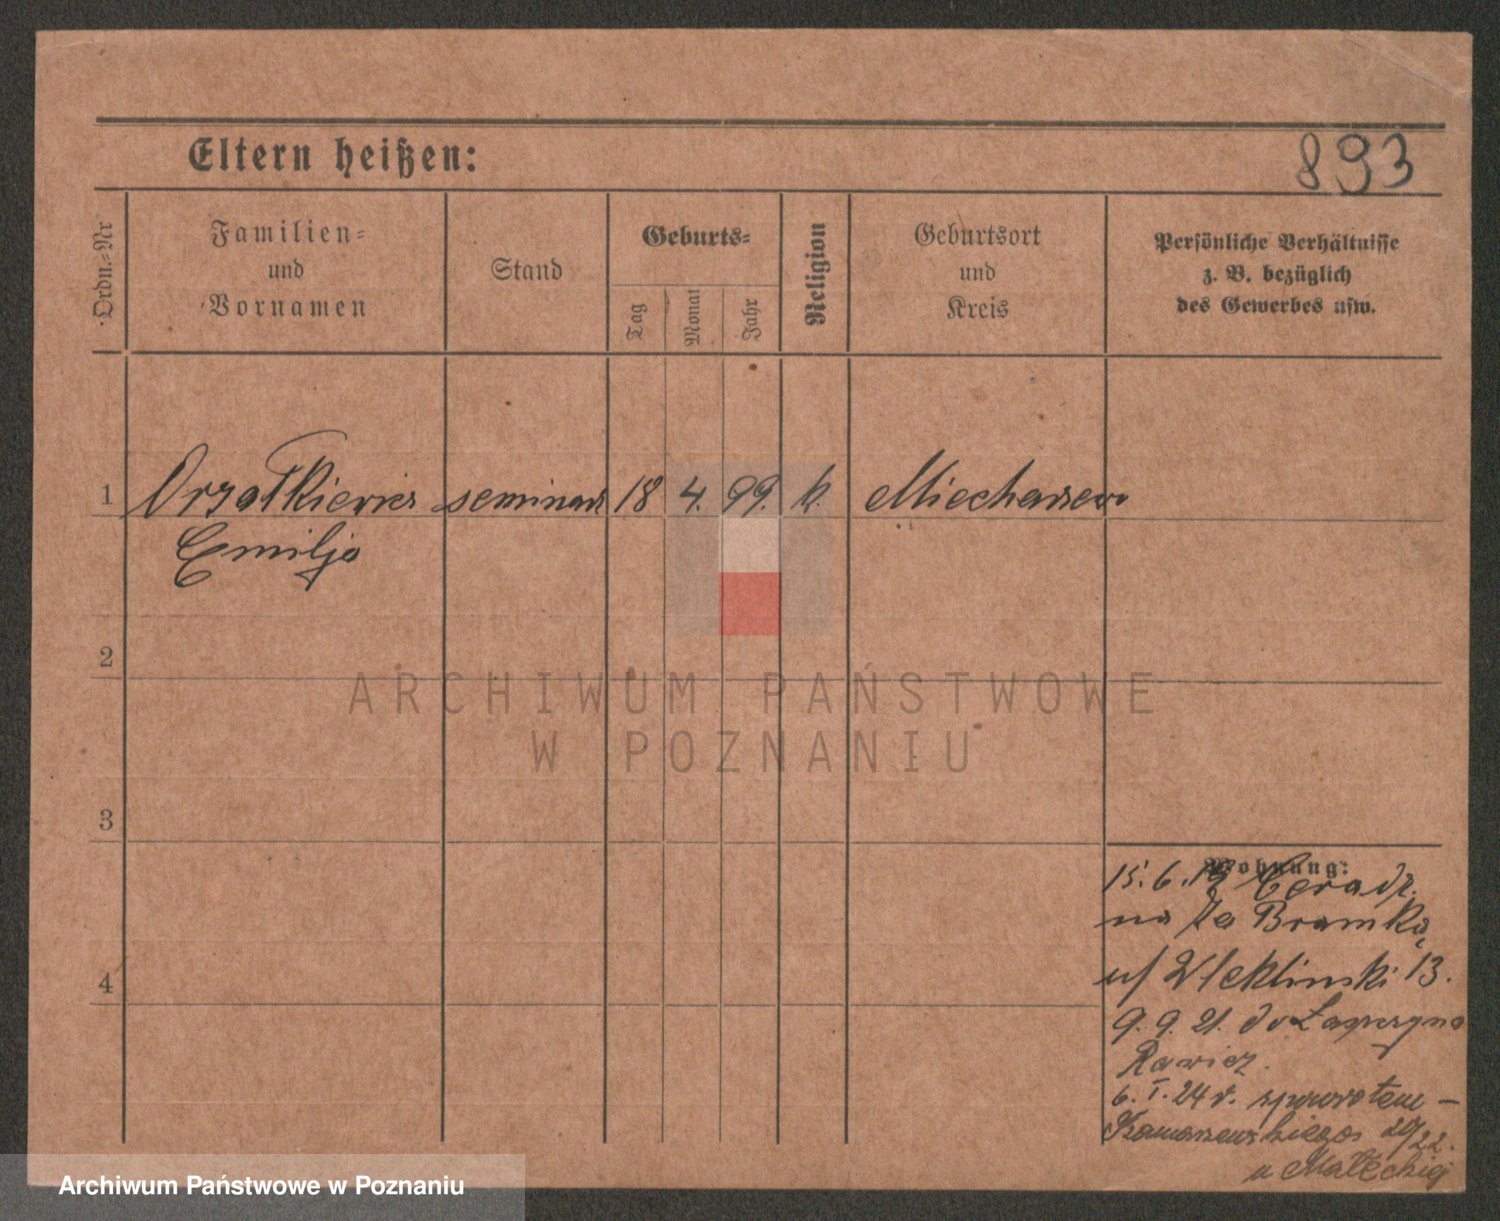 893
Eltern heißen:
Ordn.-Nr
Familien-
und
Vornamen
Stand
Geburts-
Tag
Monat
Jahr
Religion
Geburtsort
und
Kreis
Persönliche Verhältnisse
z. B. bezüglich
des Gewerbes usw.
1 Orzałkiewicz 18 4. 99. k.
Emilja
2
ARCHIWUM PAŃSTWOWE
W POZNANIU
3
4
Wohnung:
15.6.19
na Za Bramką
u/ 13.
9.9.21. do
Rawicz.
6.I.24 r. zpowrotem -
20/22.
u Małeckiej
Archiwum Państwowe w Poznaniu